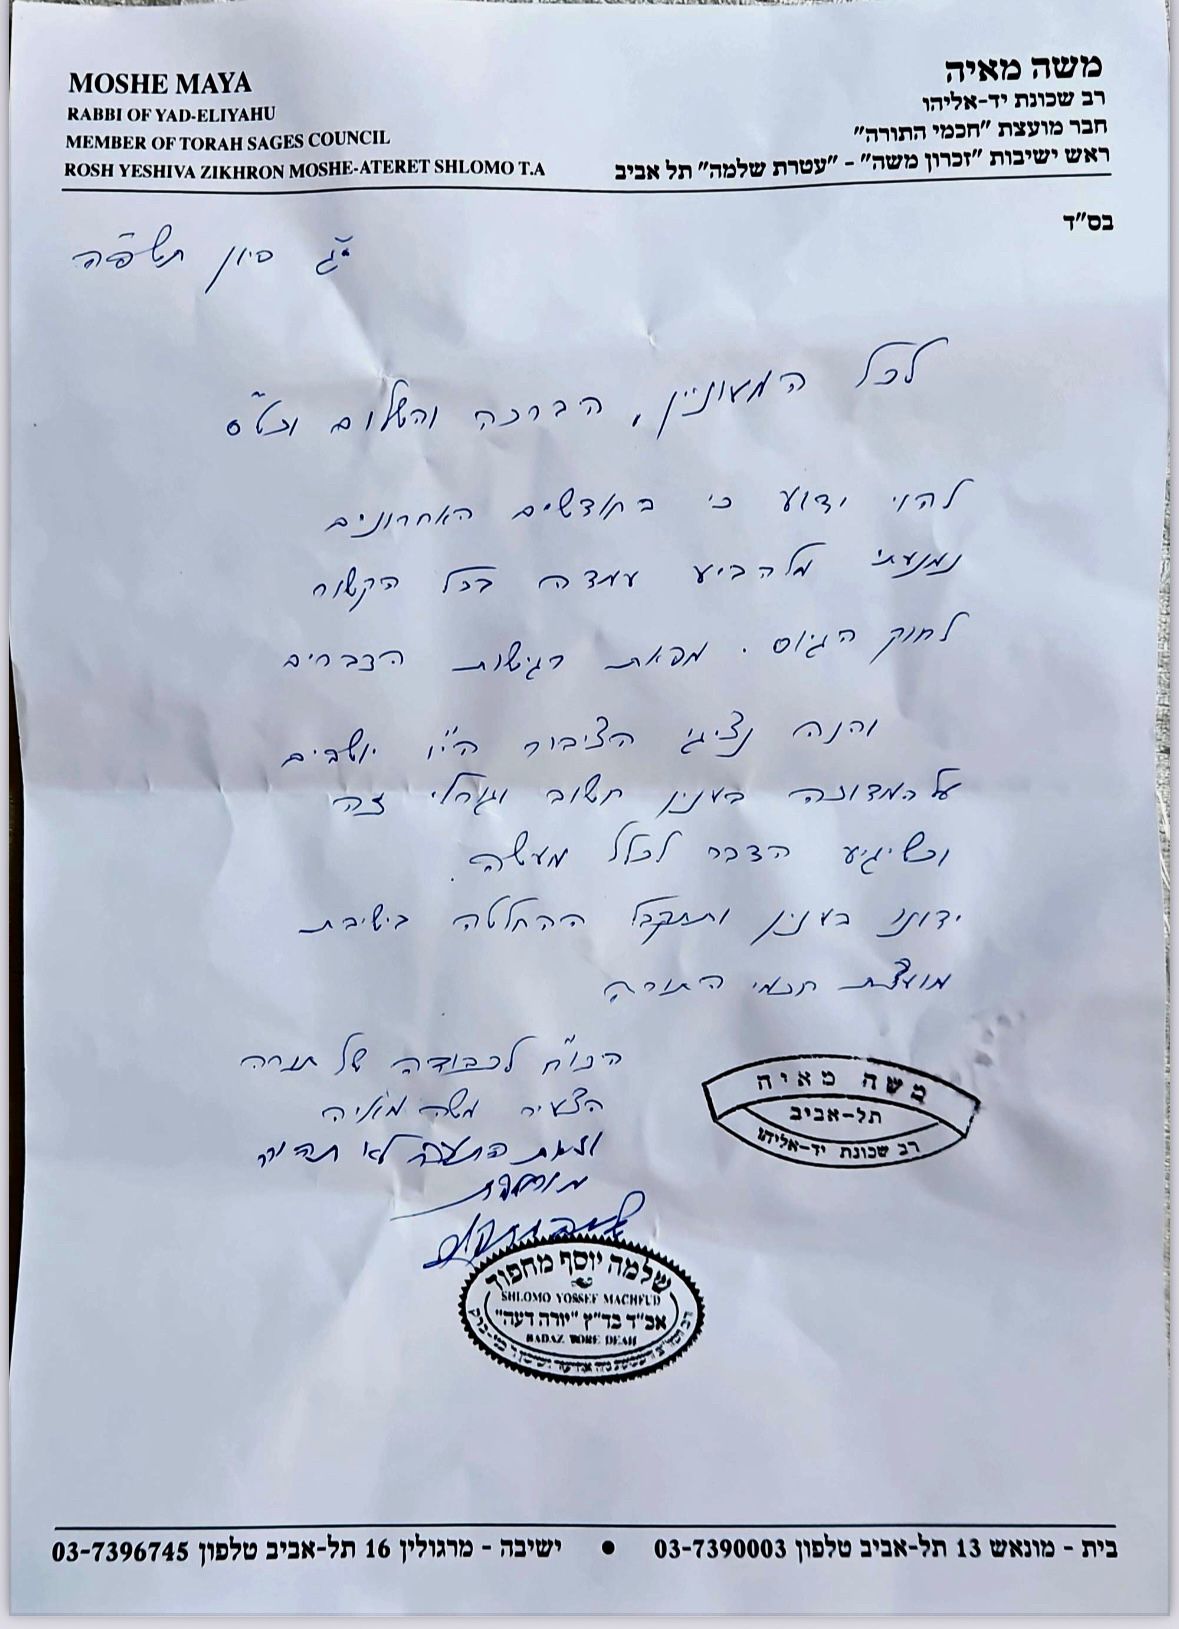 משה מאיה
רב שכונת יד-אליהו
חבר מועצת "חכמי התורה"
ראש ישיבות "זכרון משה" - "עטרת שלמה" תל אביב
MOSHE MAYA
RABBI OF YAD-ELIYAHU
MEMBER OF TORAH SAGES COUNCIL
ROSH YESHIVA ZIKHRON MOSHE-ATERET SHLOMO T.A
בס"ד
י"ג סיון תשפ"ה
לכל המעוניין, הברכה והשלום וכט"ס
להוי ידוע כי בחודשים האחרונים
נמנעתי מלהביע עמדה בכל הקשור
לחוק הגיוס. מפאת רגישות הדברים
והנה נציגי הציבור הי"ו יושבים
על המדוכה בענין חשוב וגורלי זה
וכשיגיע הדבר לכלל מעשה.
ידונו בענין ותתקבל ההחלטה בישיבת
מועצת חכמי התורה
הכו"ח לכבודה של תורה
הצעיר משה מאיה
וזאת התורה לא תהיה
מוחלפת
משה מאיה
תל-אביב
רב שכונת יד-אליהו
שלמה יוסף מחפוד
SHLOMO YOSSEF MACHFUD
אב"ד בד"ץ "יורה דעה"
BADAZ YORE DEAH
בית - מונאש 13 תל-אביב טלפון 03-7390003 • ישיבה - מרגולין 16 תל-אביב טלפון 03-7396745